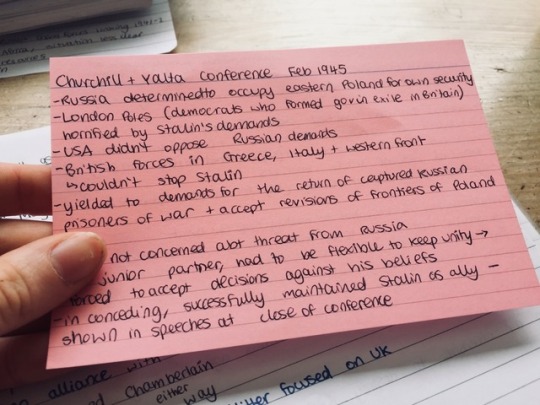 Churchill + Yalta Conference Feb 1945
- Russia determined to occupy eastern Poland for own security
- London Poles (democrats who formed gov in exile in Britain)
horrified by Stalin's demands
- USA didn't oppose Russian demands
- British forces in Greece, Italy + western front
↳ couldn't stop Stalin
- yielded to demands for the return of captured Russian
prisoners of war + accept revisions of frontiers of Poland
not concerned abt threat from Russia
junior partner, had to be flexible to keep unity →
forced to accept decisions against his beliefs
- in conceding, successfully maintained Stalin as ally -
shown in speeches at close of conference
alliance with
Chamberlain
either
way
focused on UK